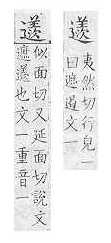 夷然切行皃一
曰遮道文一
似面切又延面切說文
遮也文一重音一